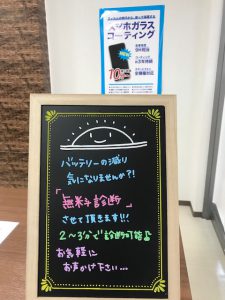 スマホガラス
コーティング
バッテリーの減り
気になりませんか?!
「無料診断」
させて頂きます!!!
2～3分で診断可能♪
お気軽に
おまかけ下さい...